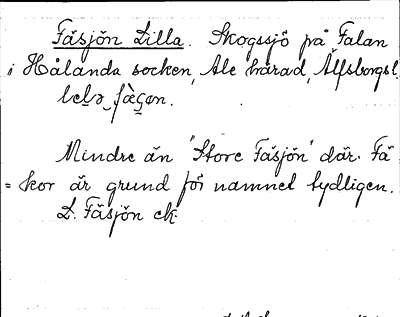 Fåsjön Lilla. Skogssjö på Falan
i Hålanda socken, Ale härad, Älfsborgsl.
Mindre än "Store Fåsjön" där. Få
= kor är grund för namnet tydligen.
L. Fåsjön ek.